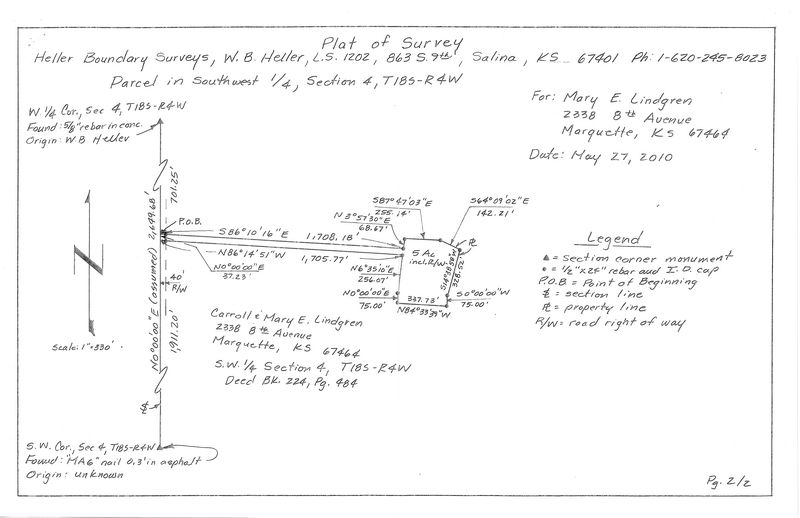 Plat of Survey
Heller Boundary Surveys, W. B. Heller, L.S. 1202, 863 S. 9th, Salina, KS 67401 Ph: 1-620-245-8023
Parcel in Southwest 1/4, Section 4, T18S-R4W
For: Mary E. Lindgren
2338 8th Avenue
Marquette, KS 67464
Date: May 27, 2010
W. 1/4 Cor., Sec 4, T18S-R4W
Found: 5/8" rebar in conc.
Origin: W B Heller
701.25'
N0°00'00"E (assumed) 2,649.68'
P.O.B.
S86°10'16"E
1,708.18'
N86°14'51"W
1,705.77'
N0°00'00"E
37.23'
40'
R/W
1,911.20'
N
Scale: 1"=330'
N 3°57'30"E
68.67'
S87°47'03"E
255.14'
S64°09'02"E
142.21'
PL
5 Ac
incl. R/W
328.52'
N6°35'10"E
256.07'
N0°00'00"E
75.00'
337.73'
N84°39'39"W
S0°00'00"W
75.00'
Legend
▲ = section corner monument
● = 1/2"x24" rebar and I.D. cap
P.O.B = Point of Beginning
SL = section line
PL = property line
R/W = road right of way
Carroll & Mary E. Lindgren
2338 8th Avenue
Marquette, KS 67464
S.W. 1/4 Section 4, T18S-R4W
Deed Bk. 224, Pg. 484
SL
S.W. Cor., Sec 4, T18S-R4W
Found: "MAG" nail 0.3' in asphalt
Origin: unknown
Pg. 2/2